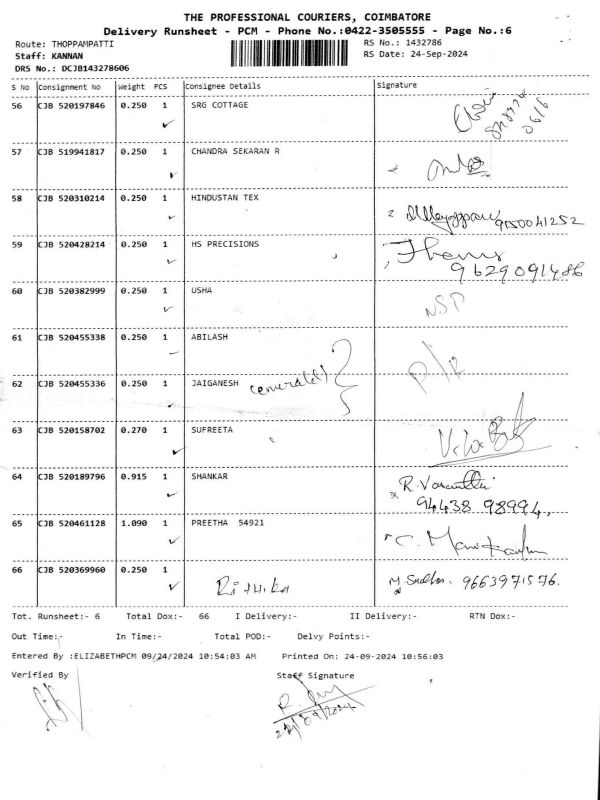 THE PROFESSIONAL COURIERS, COIMBATORE
Delivery Runsheet - PCM - Phone No.:0422-3505555 - Page No.:6
Route: THOPPAMPATTI RS No.: 1432786
Staff: KANNAN RS Date: 24-Sep-2024
DRS No.: DCJB143278606
S No Consignment No Weight PCS Consignee Details Signature
56 CJB 520197846 0.250 1 SRG COTTAGE
57 CJB 519941817 0.250 1 CHANDRA SEKARAN R
58 CJB 520310214 0.250 1 HINDUSTAN TEX
9150041252
59 CJB 520428214 0.250 1 HS PRECISIONS
9629091486
60 CJB 520382999 0.250 1 USHA
NSP
61 CJB 520455338 0.250 1 ABILASH
62 CJB 520455336 0.250 1 JAIGANESH (emerald)
63 CJB 520158702 0.270 1 SUFREETA
64 CJB 520189796 0.915 1 SHANKAR
R. Vasanthi
94438 98994
65 CJB 520461128 1.090 1 PREETHA 54921
66 CJB 520369960 0.250 1
Rithika M. Sudha. 9663971576.
Tot. Runsheet:- 6 Total Dox:- 66 I Delivery:- II Delivery:- RTN Dox:-
Out Time:- In Time:- Total POD:- Delvy Points:-
Entered By :ELIZABETHPCM 09/24/2024 10:54:03 AM Printed On: 24-09-2024 10:56:03
Verified By Staff Signature
24/09/2024